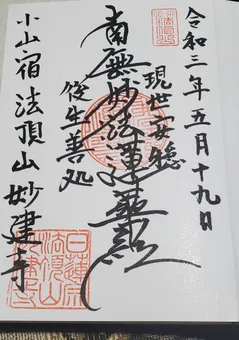 令和三年五月十九日
現世安穏
南無妙法蓮華経
後生善処
小山宿 法頂山 妙建寺
日蓮宗
法頂山
妙建寺